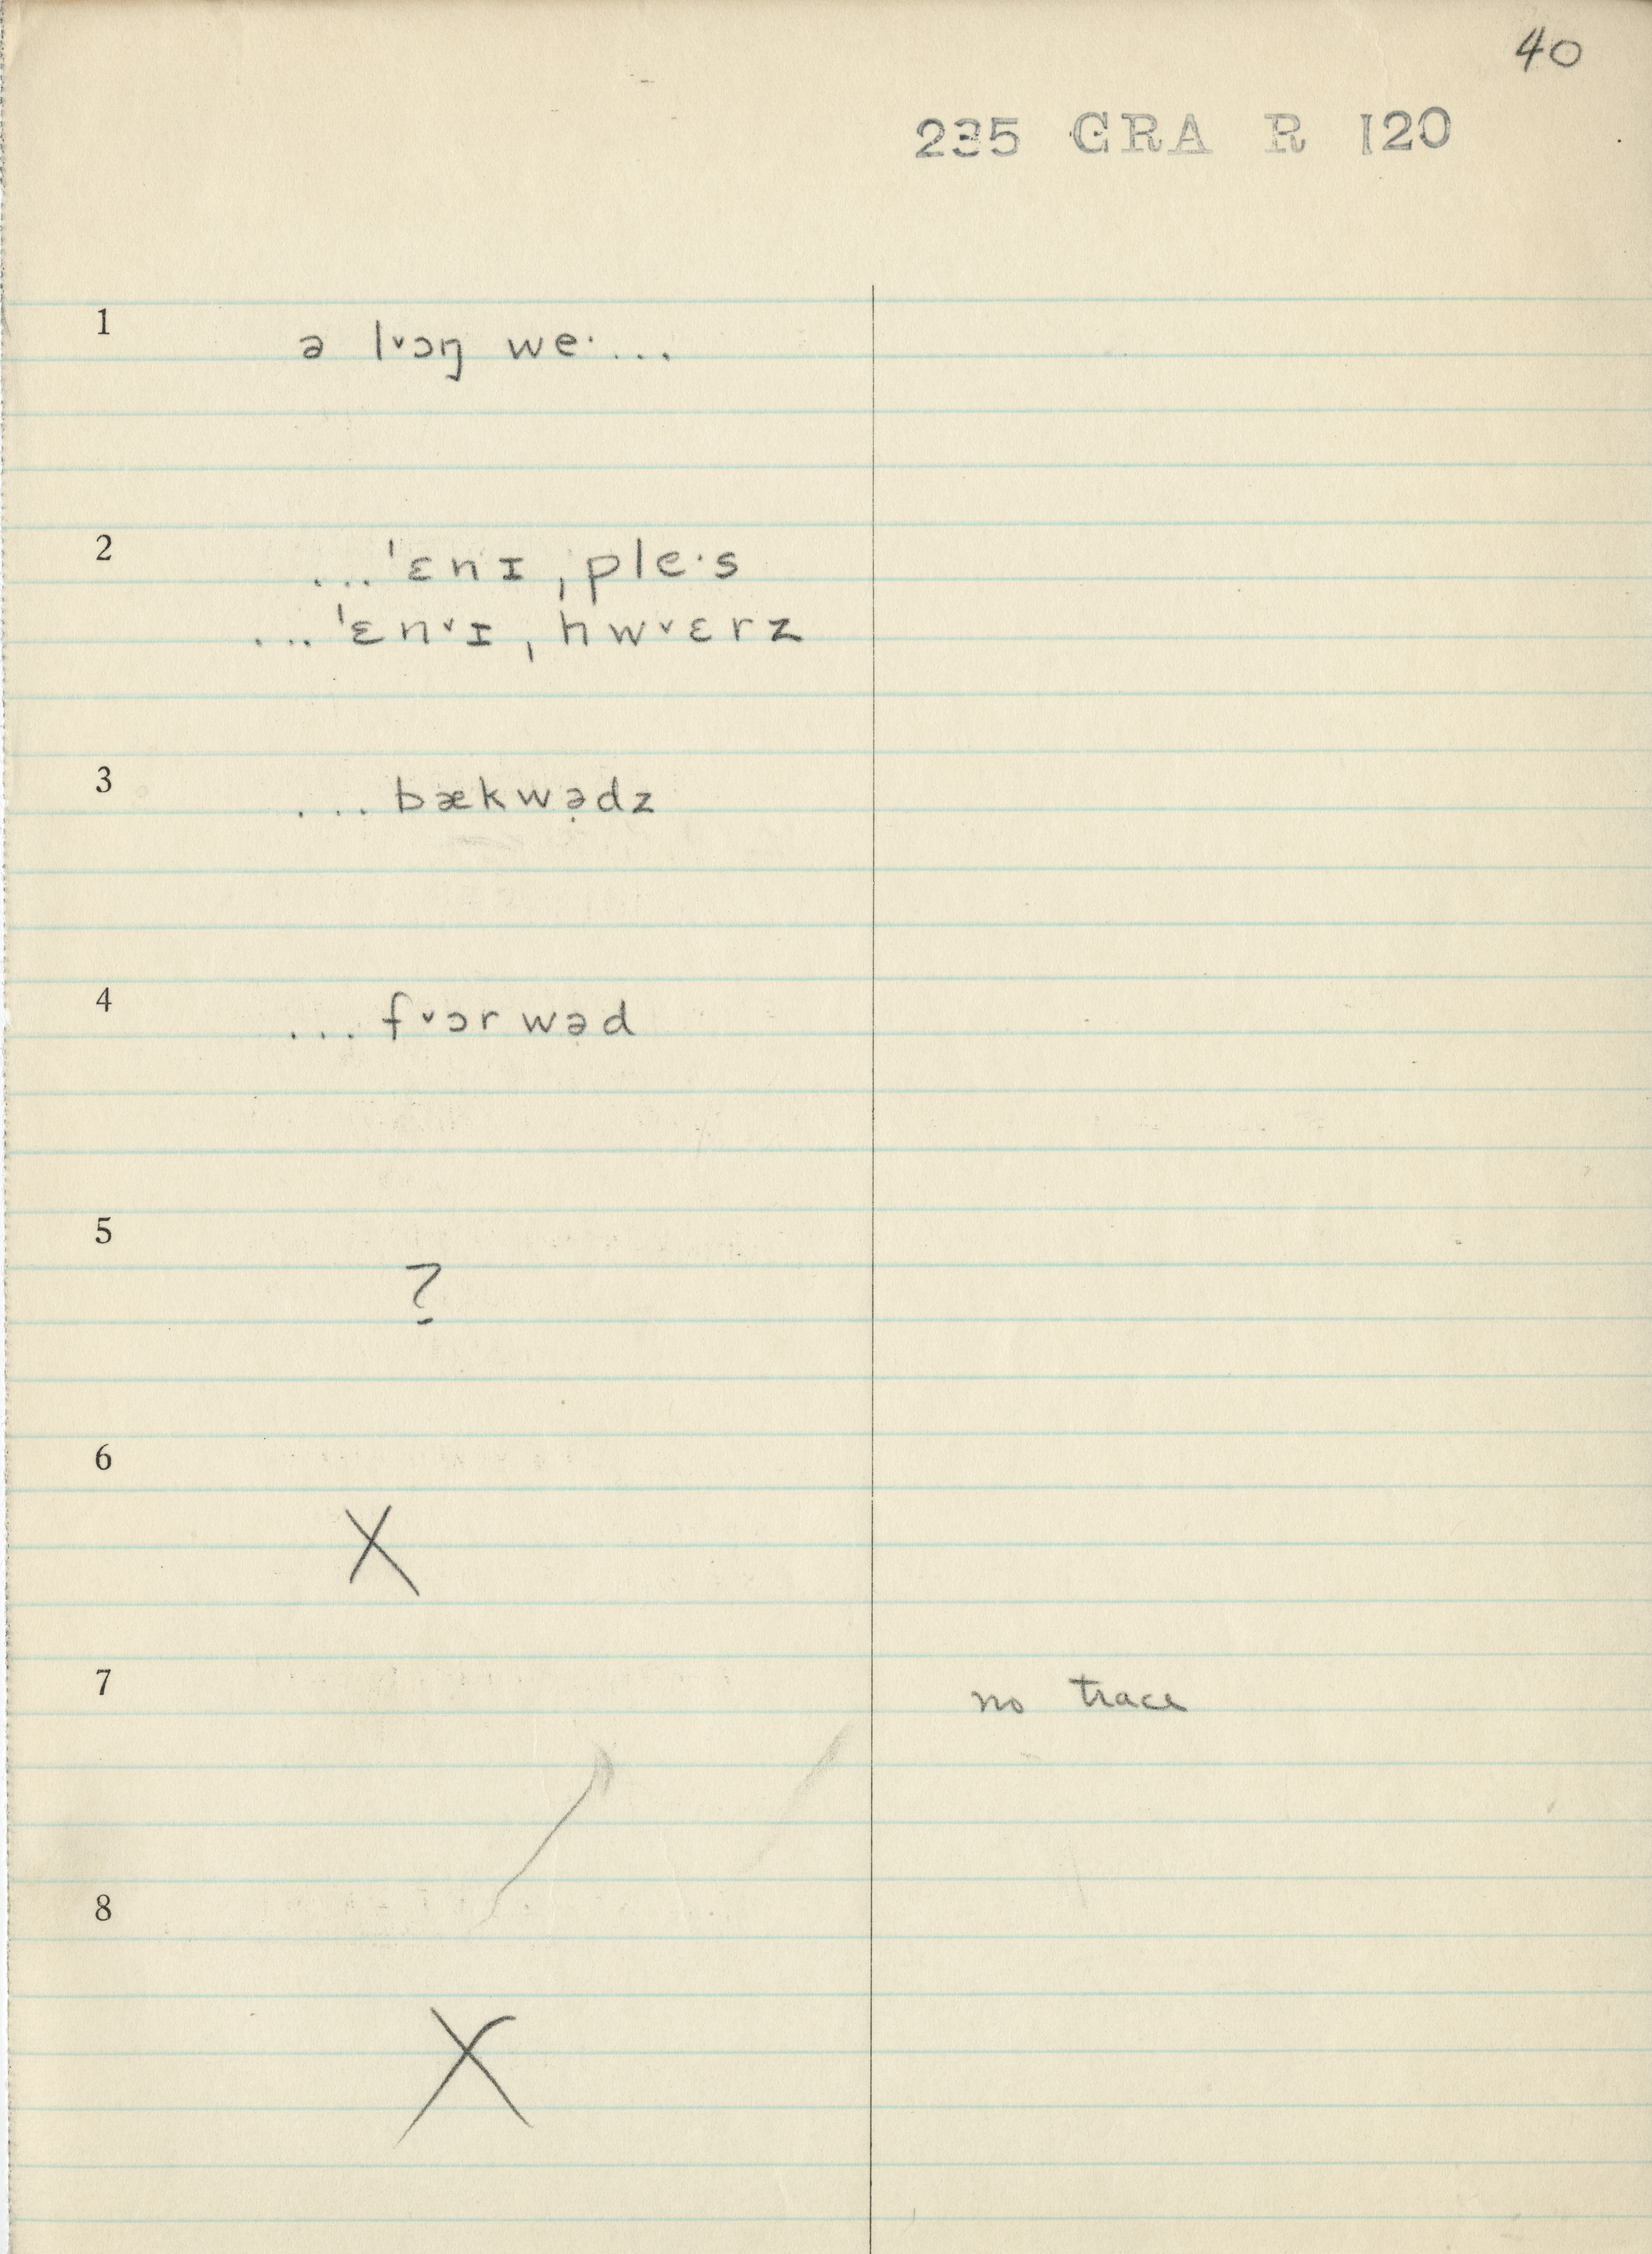 40
235 GRA R 120
1
ə lˇɔŋ we· ...
2
... ˈɛnɪ ˌple·s
... ˈɛnˇɪ ˌhwˇɛrz
3
... bækwə̣dz
4
... fˇɔrwəd
5
?
6
X
7 no trace
8
X